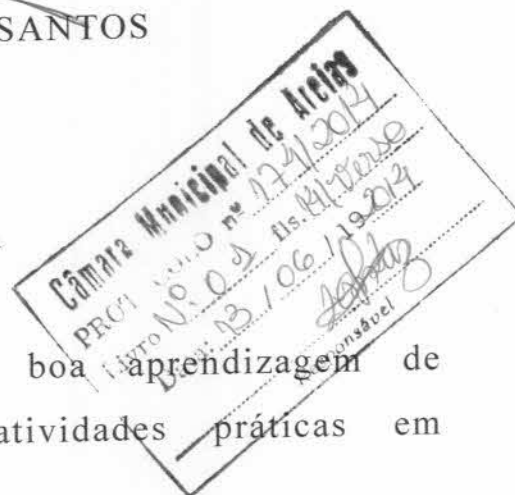 SANTOS
Câmara Municipal de Areias
PROT nº 174/2014
Livro Nº 01 fls. Verso
13/06/192014
Responsável
boa aprendizagem de
atividades práticas em